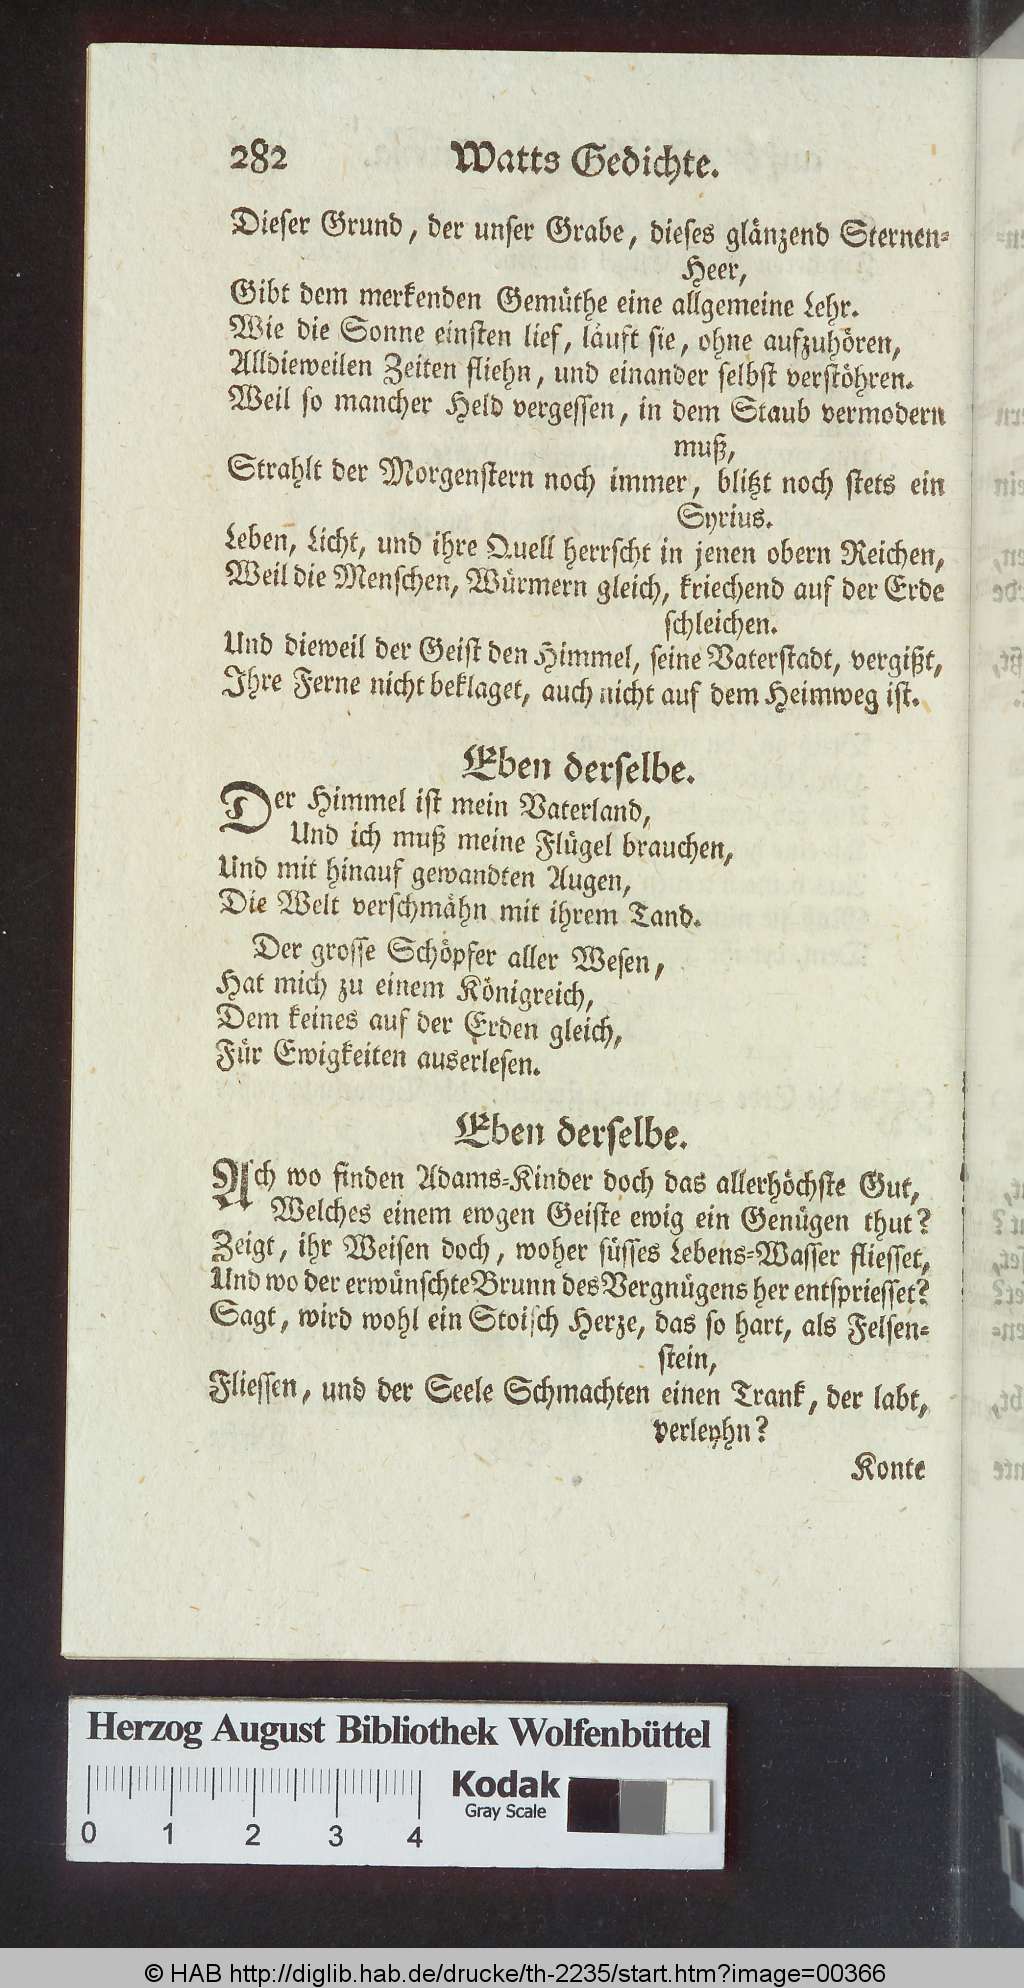 282 Watts Gedichte.
Dieser Grund, der unser Grabe, dieses glänzend Sternen-
Heer,
Gibt dem merkenden Gemüthe eine allgemeine Lehr.
Wie die Sonne einsten lief, läuft sie, ohne aufzuhören,
Alldieweilen Zeiten fliehn, und einander selbst verstöhren.
Weil so mancher Held vergessen, in dem Staub vermodern
muß,
Strahlt der Morgenstern noch immer, blitzt noch stets ein
Syrius.
Leben, Licht, und ihre Quell herrscht in jenen obern Reichen,
Weil die Menschen, Würmern gleich, kriechend auf der Erde
schleichen.
Und dieweil der Geist den Himmel, seine Vaterstadt, vergißt,
Ihre Ferne nicht beklaget, auch nicht auf dem Heimweg ist.
Eben derselbe.
Der Himmel ist mein Vaterland,
Und ich muß meine Flügel brauchen,
Und mit hinauf gewandten Augen,
Die Welt verschmähn mit ihrem Tand.
Der grosse Schöpfer aller Wesen,
Hat mich zu einem Königreich,
Dem keines auf der Erden gleich,
Für Ewigkeiten auserlesen.
Eben derselbe.
Ach wo finden Adams-Kinder doch das allerhöchste Gut,
Welches einem ewgen Geiste ewig ein Genügen thut?
Zeigt, ihr Weisen doch, woher süsses Lebens-Wasser fliesset,
Und wo der erwünschte Brunn des Vergnügens her entspriesset?
Sagt, wird wohl ein Stoisch Herze, das so hart, als Felsen-
stein,
Fliessen, und der Seele Schmachten einen Trank, der labt,
verleyhn?
Konte
Herzog August Bibliothek Wolfenbüttel
Kodak
Gray Scale
0 1 2 3 4
© HAB http://diglib.hab.de/drucke/th-2235/start.htm?image=00366